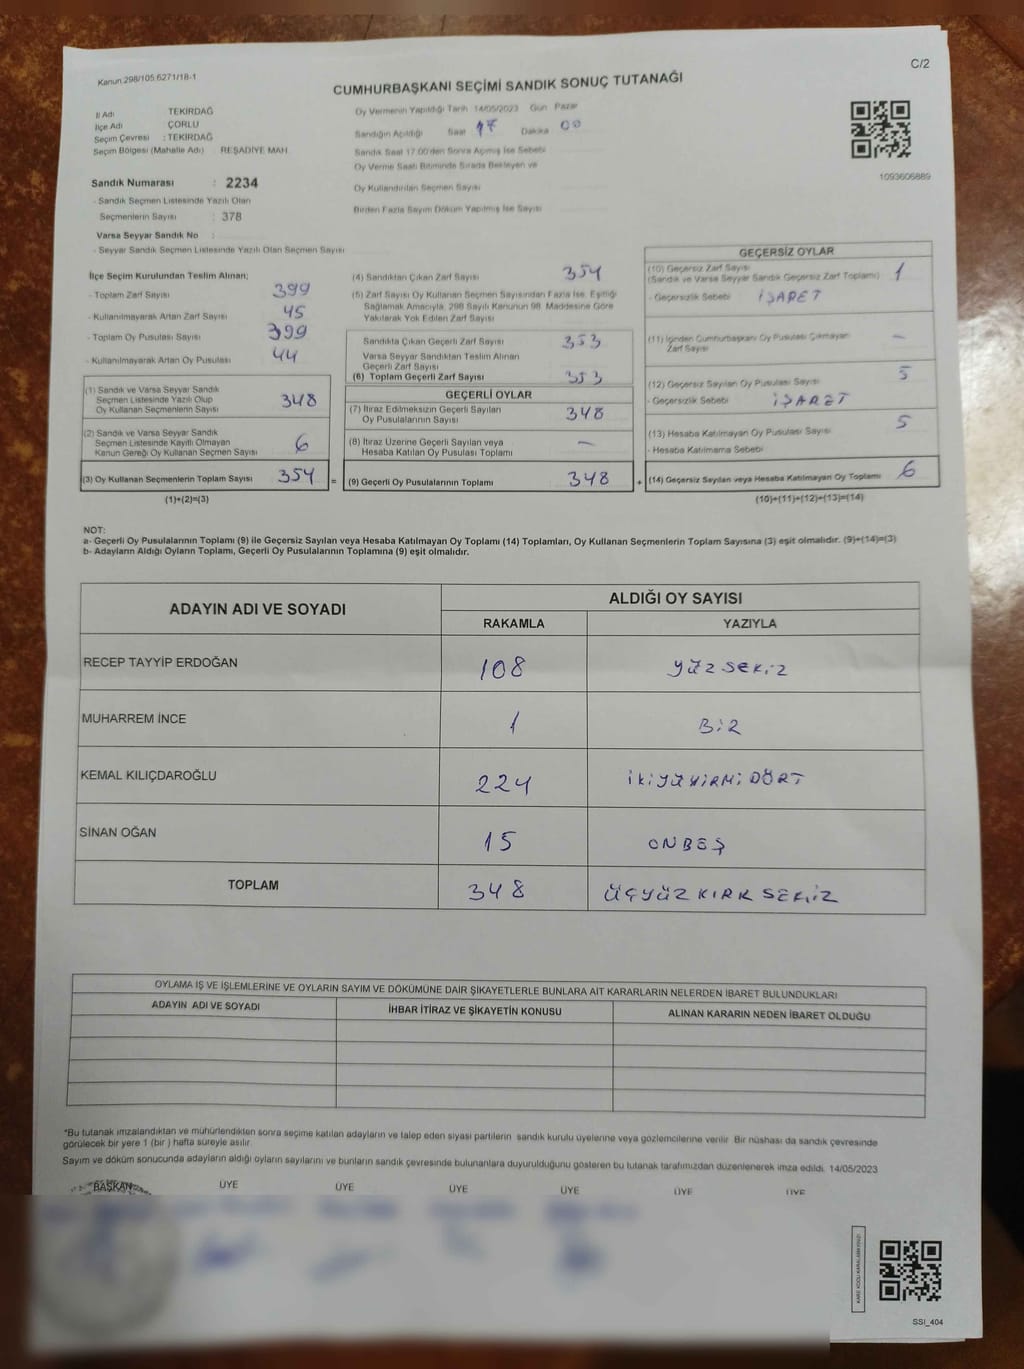 C/2
Kanun 298/105 6271/18-1
CUMHURBAŞKANI SEÇİMİ SANDIK SONUÇ TUTANAĞI
İl Adı TEKİRDAĞ
İlçe Adı ÇORLU
Seçim Çevresi : TEKİRDAĞ
Seçim Bölgesi (Mahalle Adı) REŞADİYE MAH.
Oy Vermenin Yapıldığı Tarih 14/05/2023 Gün Pazar
Sandığın Açıldığı Saat 17 Dakika 00
Sandık Saat 17.00'den Sonra Açmış İse Sebebi
Oy Verme Saati Bitiminde Sırada Bekleyen ve
Oy Kullandırılan Seçmen Sayısı
Birden Fazla Sayım Döküm Yapılmış İse Sayısı
1093606889
Sandık Numarası : 2234
- Sandık Seçmen Listesinde Yazılı Olan
Seçmenlerin Sayısı : 378
Varsa Seyyar Sandık No :
- Seyyar Sandık Seçmen Listesinde Yazılı Olan Seçmen Sayısı
İlçe Seçim Kurulundan Teslim Alınan;
- Toplam Zarf Sayısı 399
- Kullanılmayarak Artan Zarf Sayısı 45
- Toplam Oy Pusulası Sayısı 399
- Kullanılmayarak Artan Oy Pusulası 44
(1) Sandık ve Varsa Seyyar Sandık
Seçmen Listesinde Yazılı Olup
Oy Kullanan Seçmenlerin Sayısı 348
(2) Sandık ve Varsa Seyyar Sandık
Seçmen Listesinde Kayıtlı Olmayan
Kanun Gereği Oy Kullanan Seçmen Sayısı 6
(3) Oy Kullanan Seçmenlerin Toplam Sayısı 354 =
(1)+(2)=(3)
(4) Sandıktan Çıkan Zarf Sayısı 354
(5) Zarf Sayısı Oy Kullanan Seçmen Sayısından Fazla İse, Eşitliği
Sağlamak Amacıyla, 298 Sayılı Kanunun 98. Maddesine Göre
Yakılarak Yok Edilen Zarf Sayısı
Sandıkta Çıkan Geçerli Zarf Sayısı 353
Varsa Seyyar Sandıktan Teslim Alınan
Geçerli Zarf Sayısı
(6) Toplam Geçerli Zarf Sayısı 353
GEÇERLİ OYLAR
(7) İtiraz Edilmeksizin Geçerli Sayılan
Oy Pusulalarının Sayısı 348
(8) İtiraz Üzerine Geçerli Sayılan veya
Hesaba Katılan Oy Pusulası Toplamı -
(9) Geçerli Oy Pusulalarının Toplamı 348 +
GEÇERSİZ OYLAR
(10) Geçersiz Zarf Sayısı
(Sandık ve Varsa Seyyar Sandık Geçersiz Zarf Toplamı) 1
- Geçersizlik Sebebi İŞARET
(11) İçinden Cumhurbaşkanı Oy Pusulası Çıkmayan
Zarf Sayısı -
(12) Geçersiz Sayılan Oy Pusulası Sayısı 5
- Geçersizlik Sebebi İŞARET
(13) Hesaba Katılmayan Oy Pusulası Sayısı 5
- Hesaba Katılmama Sebebi
(14) Geçersiz Sayılan veya Hesaba Katılmayan Oy Toplamı 6
(10)+(11)+(12)+(13)=(14)
NOT:
a- Geçerli Oy Pusulalarının Toplamı (9) ile Geçersiz Sayılan veya Hesaba Katılmayan Oy Toplamı (14) Toplamları, Oy Kullanan Seçmenlerin Toplam Sayısına (3) eşit olmalıdır. (9)+(14)=(3)
b- Adayların Aldığı Oyların Toplamı, Geçerli Oy Pusulalarının Toplamına (9) eşit olmalıdır.
ADAYIN ADI VE SOYADI ALDIĞI OY SAYISI
RAKAMLA YAZIYLA
RECEP TAYYİP ERDOĞAN 108 YÜZ SEKİZ
MUHARREM İNCE 1 BİR
KEMAL KILIÇDAROĞLU 224 İKİYÜYİRMİ DÖRT
SİNAN OĞAN 15 ONBEŞ
TOPLAM 348 ÜÇYÜZ KIRK SEKİZ
OYLAMA İŞ VE İŞLEMLERİNE VE OYLARIN SAYIM VE DÖKÜMÜNE DAİR ŞİKAYETLERLE BUNLARA AİT KARARLARIN NELERDEN İBARET BULUNDUKLARI
ADAYIN ADI VE SOYADI İHBAR İTİRAZ VE ŞİKAYETİN KONUSU ALINAN KARARIN NEDEN İBARET OLDUĞU
*Bu tutanak imzalandıktan ve mühürlendikten sonra seçime katılan adayların ve talep eden siyasi partilerin sandık kurulu üyelerine veya gözlemcilerine verilir. Bir nüshası da sandık çevresinde
görülecek bir yere 1 (bir ) hafta süreyle asılır.
Sayım ve döküm sonucunda adayların aldığı oyların sayılarını ve bunların sandık çevresinde bulunanlara duyurulduğunu gösteren bu tutanak tarafımızdan düzenlenerek imza edildi. 14/05/2023
BAŞKAN ÜYE ÜYE ÜYE ÜYE ÜYE ÜYE
KARE KODU KARALAMAYINIZ!
SSI_404